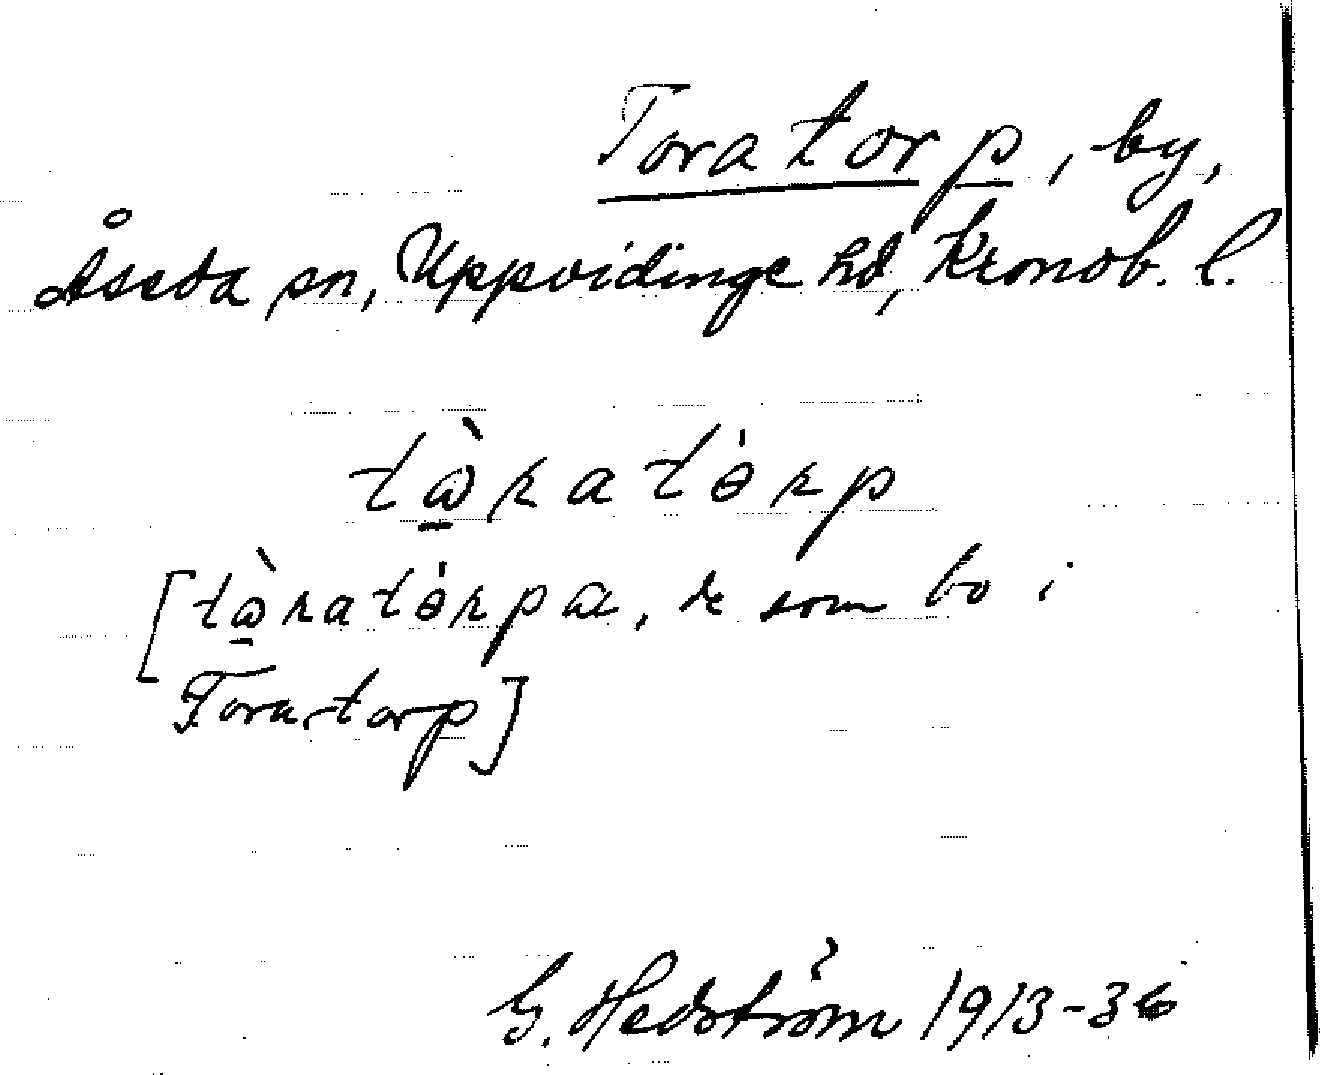 Toratorp, by,
Åseda sn, Uppvidinge hd, Kronob. l.
tὼ̲ratɵ̍rp
[tὼ̲ratɵ̍rpa, de som bo i
Toratorp]
G. Hedström 1913-36